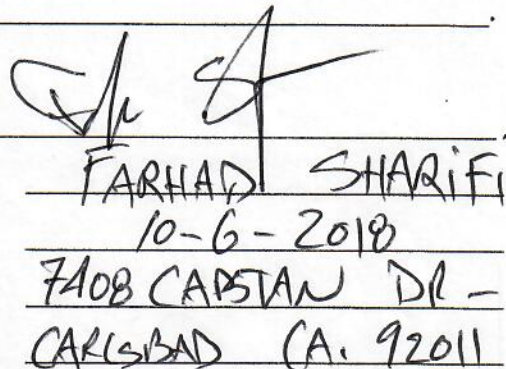 FARHAD SHARiFi
10-6-2018
7408 CAPSTAN DR -
CARLSBAD CA. 92011